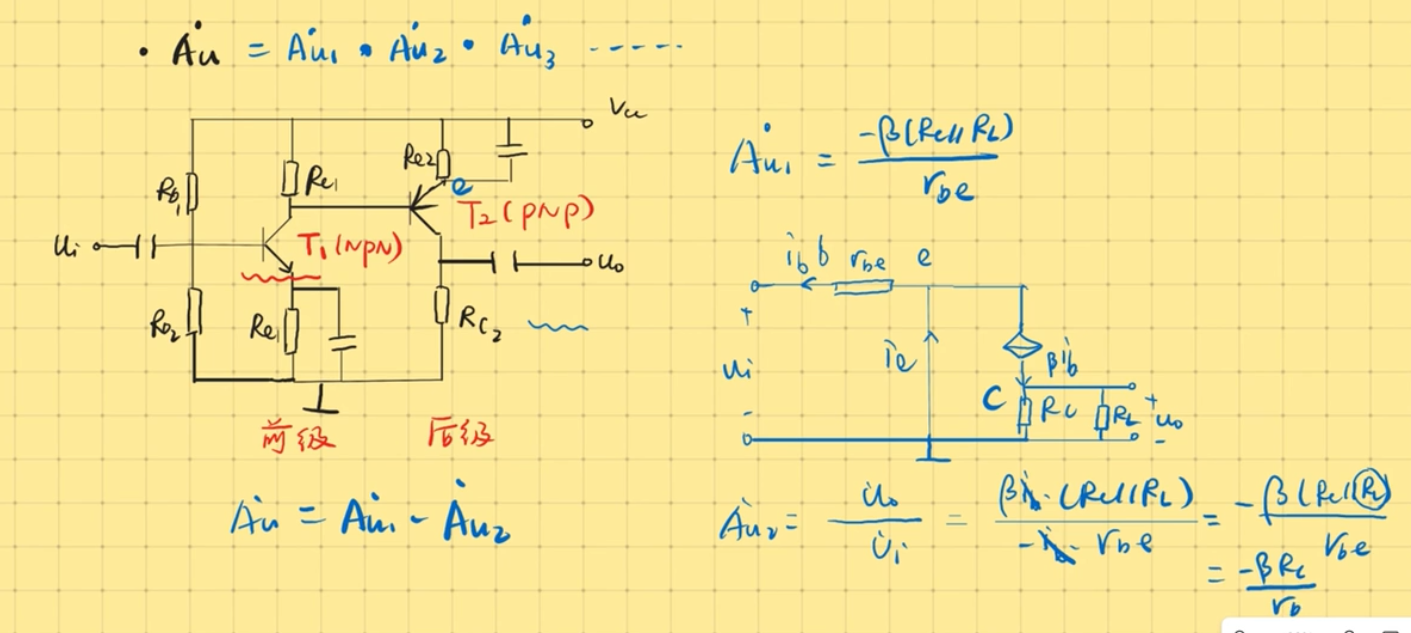 · Ȧu = Ȧu₁ · Ȧu₂ · Ȧu₃ ······
Vcc
Rb₁
Rc₁
Re2
e
T₂(PNP)
Ui
T₁(NPN)
Uo
Rb₂
Re₁
Rc₂
前级
后级
Ȧu = Ȧu₁ · Ȧu₂
Ȧu₁ = -β(Rc∥RL) / rbe
ib b rbe e
+
Ui
-
ie
βib
C
Rc
RL
+
uo
-
Ȧu₂ = U̇o / U̇i = βib·(Rc∥RL) / -ib·rbe = -β(Rc∥RL) / rbe
= -βRc / rb